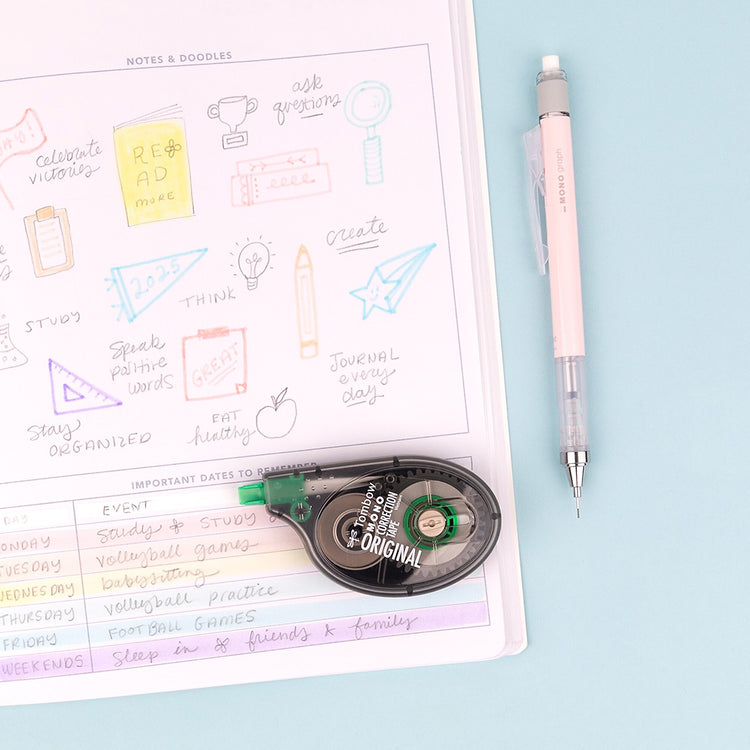 NOTES & DOODLES
celebrate
victories
READ
MORE
ask
questions
create
2025
THINK
STUDY
Speak
positive
words
GREAT
JOURNAL
every
day
Stay
ORGANIZED
EAT
healthy
IMPORTANT DATES TO REMEMBER
DAY EVENT
MONDAY Study & STUDY
TUESDAY volleyball games
WEDNESDAY babysitting
THURSDAY volleyball practice
FRIDAY FOOTBALL GAMES
WEEKENDS Sleep in & friends & family
Tombow
MONO
CORRECTION
TAPE
ORIGINAL
MONO graph